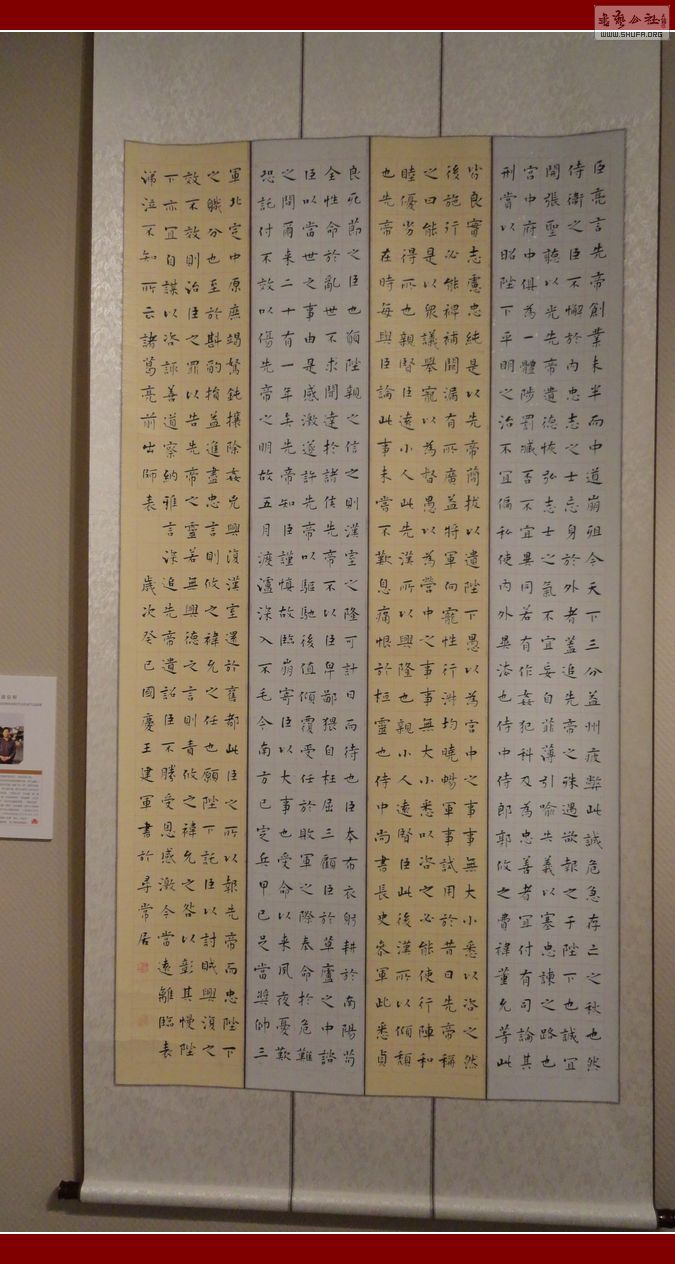 書藝公社
WWW.SHUFA.ORG
臣亮言先帝創業未半而中道崩殂今天下三分益州疲弊此誠危急存亡之秋也然
侍衛之臣不懈於內忠志之士忘身於外者蓋追先帝之殊遇欲報之于陛下也誠宜
開張聖聽以光先帝遺德恢弘志士之氣不宜妄自菲薄引喻失義以塞忠諫之路也
宮中府中俱為一體陟罰臧否不宜異同若有作姦犯科及為忠善者宜付有司論其
刑賞以昭陛下平明之治不宜偏私使內外異法也侍中侍郎郭攸之費禕董允等此
皆良實志慮忠純是以先帝簡拔以遺陛下愚以為宮中之事事無大小悉以咨之然
後施行必能裨補闕漏有所廣益將軍向寵性行淑均曉暢軍事試用於昔日先帝稱
之曰能是以眾議舉寵以為督愚以為營中之事事無大小悉以咨之必能使行陣和
睦優劣得所也親賢臣遠小人此先漢所以興隆也親小人遠賢臣此後漢所以傾頹
也先帝在時每與臣論此事未嘗不歎息痛恨於桓靈也侍中尚書長史參軍此悉貞
良死節之臣也願陛親之信之則漢室之隆可計日而待也臣本布衣躬耕於南陽苟
全性命於亂世不求聞達於諸侯先帝不以臣卑鄙猥自枉屈三顧臣於草廬之中諮
臣以當世之事由是感激遂許先帝以驅馳後值傾覆受任於敗軍之際奉命於危難
之間爾来二十有一年矣先帝知臣謹慎故臨崩寄臣以大事也受命以来夙夜憂歎
恐託付不效以傷先帝之明故五月渡瀘深入不毛今南方已定兵甲已足當獎帥三
軍北定中原庶竭駑鈍攘除姦凶興復漢室還於舊都此臣之所以報先帝而忠陛下
之職分也至於斟酌損益進盡忠言則攸之禕允之任也願陛下託臣以討賊興復之
效不效則治臣之罪以告先帝之靈若無興德之言則責攸之禕允之咎以彰其慢陛
下亦宜自謀以咨諏善道察納雅言深追先帝遺詔臣不勝受恩感激今當遠離臨表
涕泣不知所云諸葛亮前出師表 歲次癸巳國慶王建軍書於尋常居